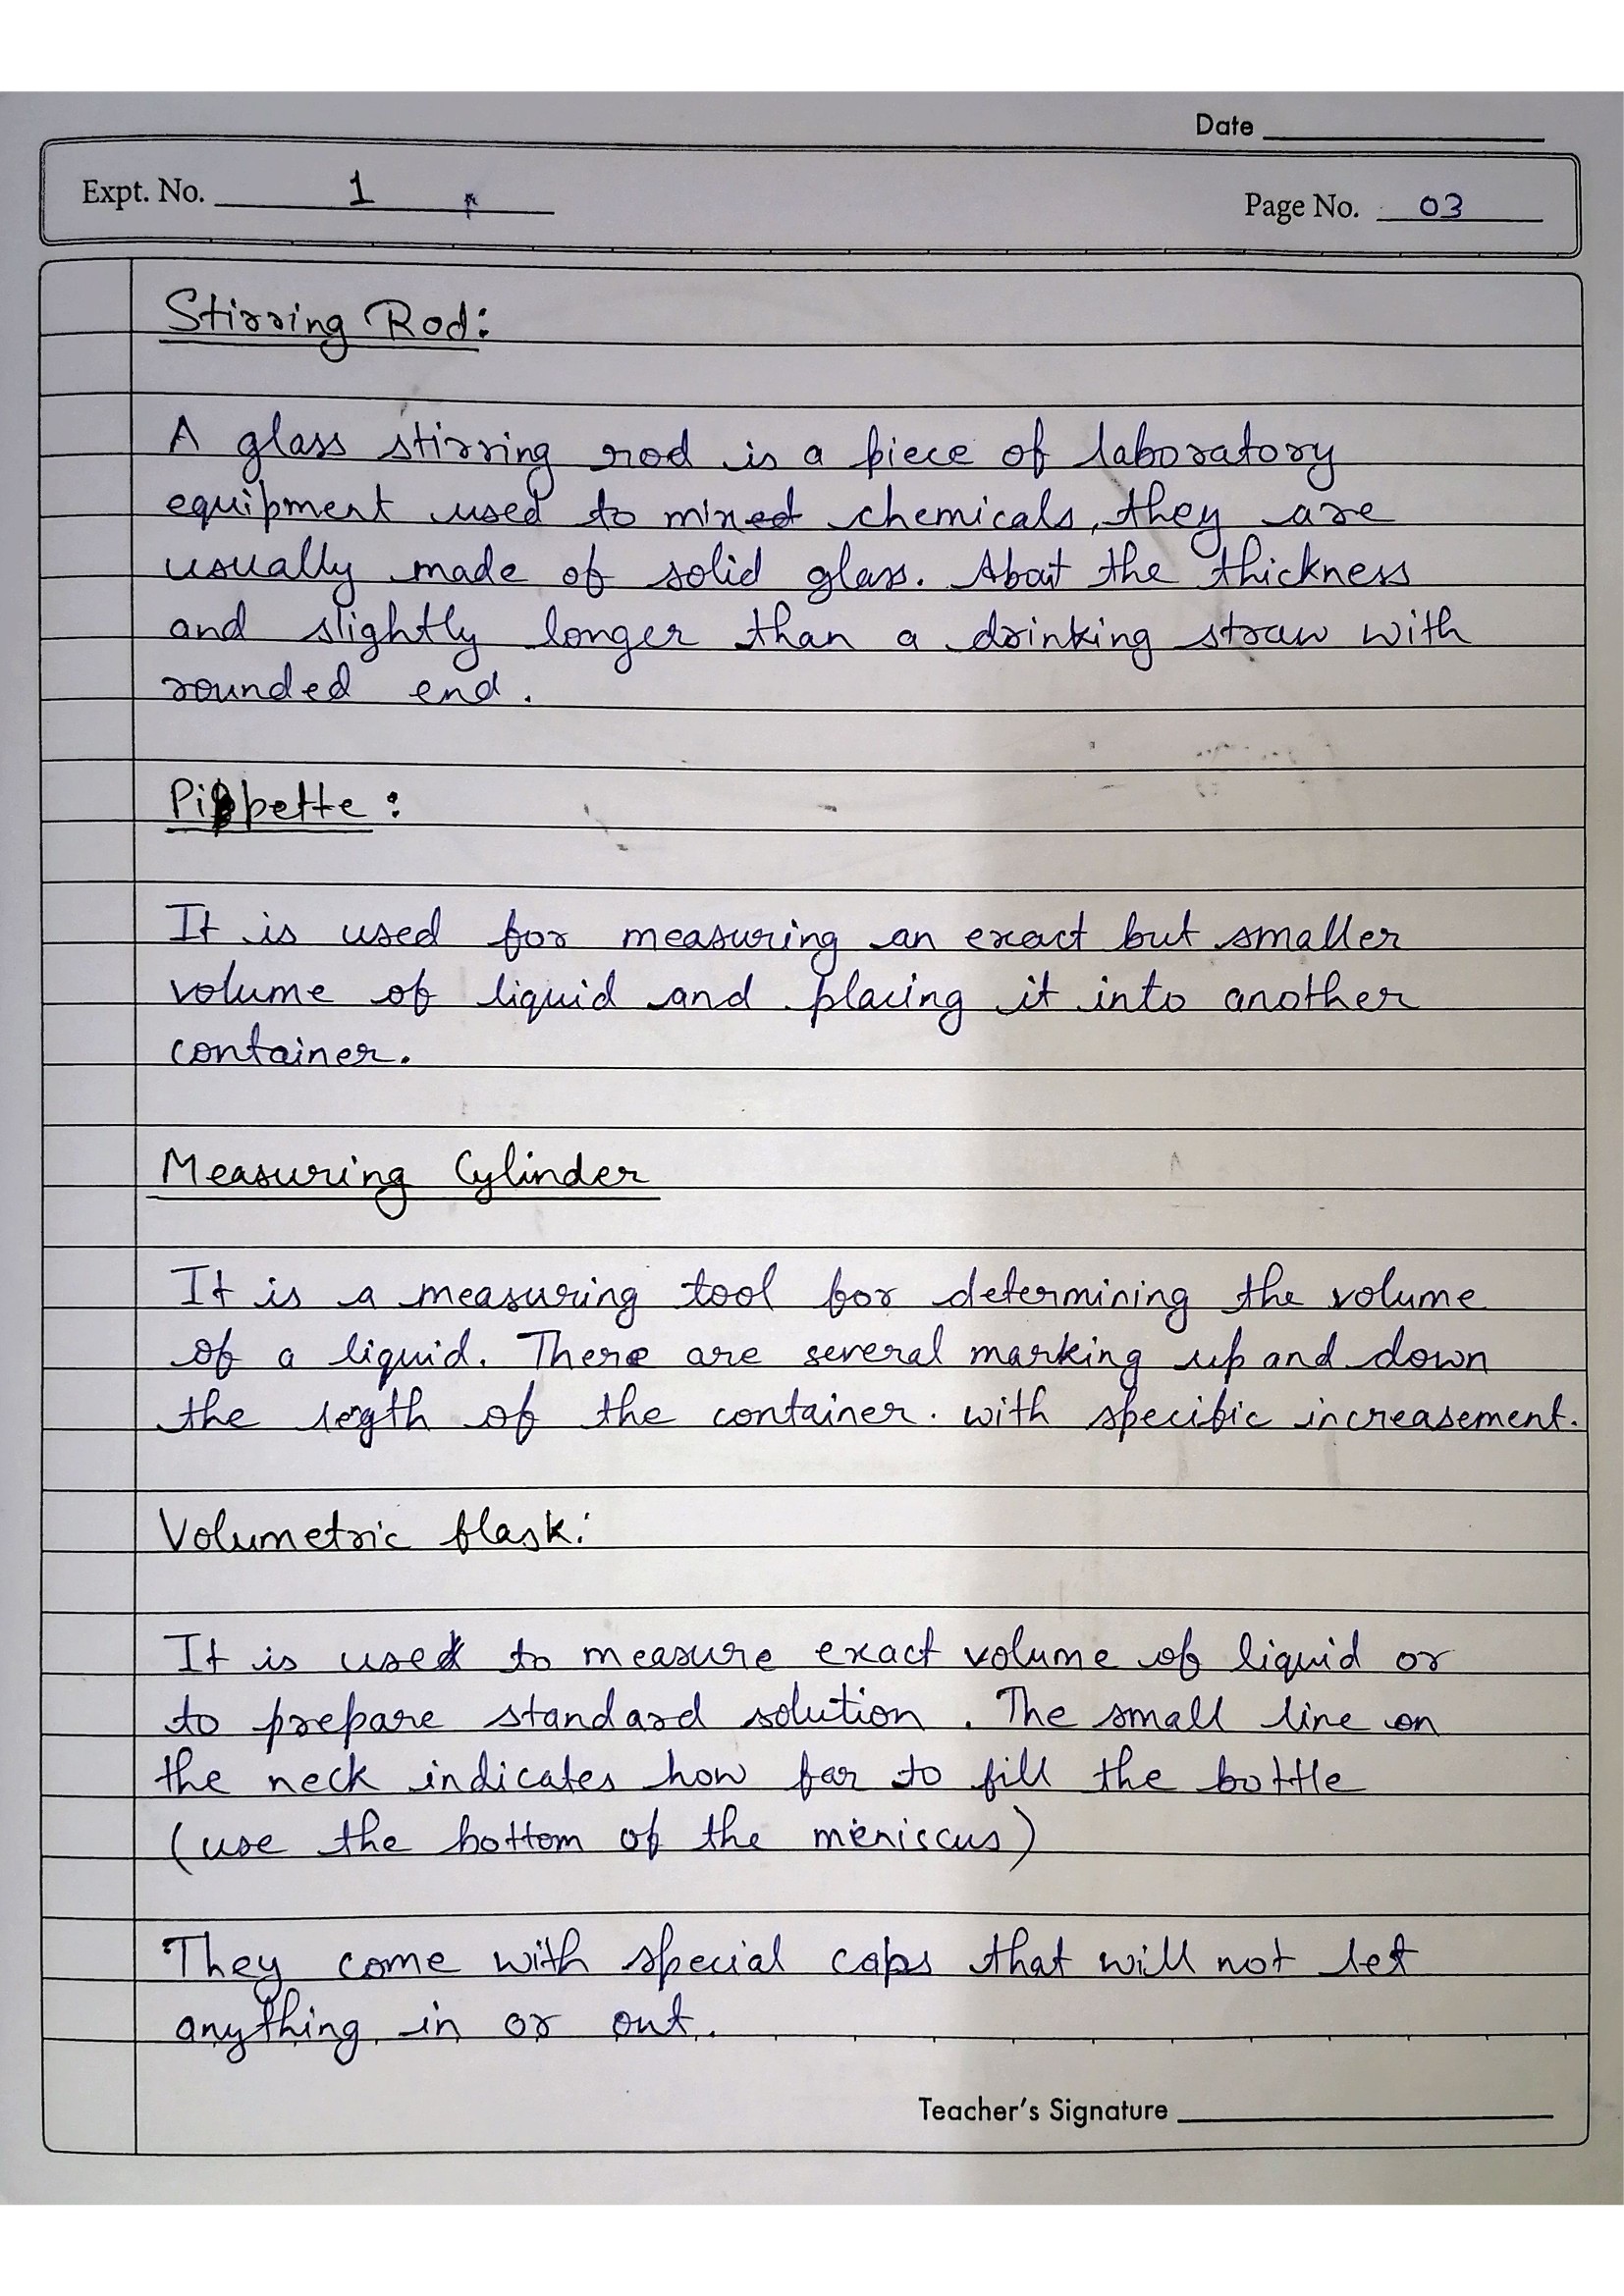 Date
Expt. No. 1
Page No. 03
Stirring Rod:
A glass stirring rod is a piece of laboratory
equipment used to mixed chemicals, they are
usually made of solid glass. About the thickness
and slightly longer than a drinking straw with
rounded end.
Pippette:
It is used for measuring an exact but smaller
volume of liquid and placing it into another
container.
Measuring Cylinder
It is a measuring tool for determining the volume
of a liquid. There are several marking up and down
the legth of the container. with specific increasement.
Volumetric flask:
It is used to measure exact volume of liquid or
to prepare standard solution. The small line on
the neck indicates how far to fill the bottle
(use the bottom of the meniscus)
They come with special caps that will not let
anything in or out.
Teacher's Signature